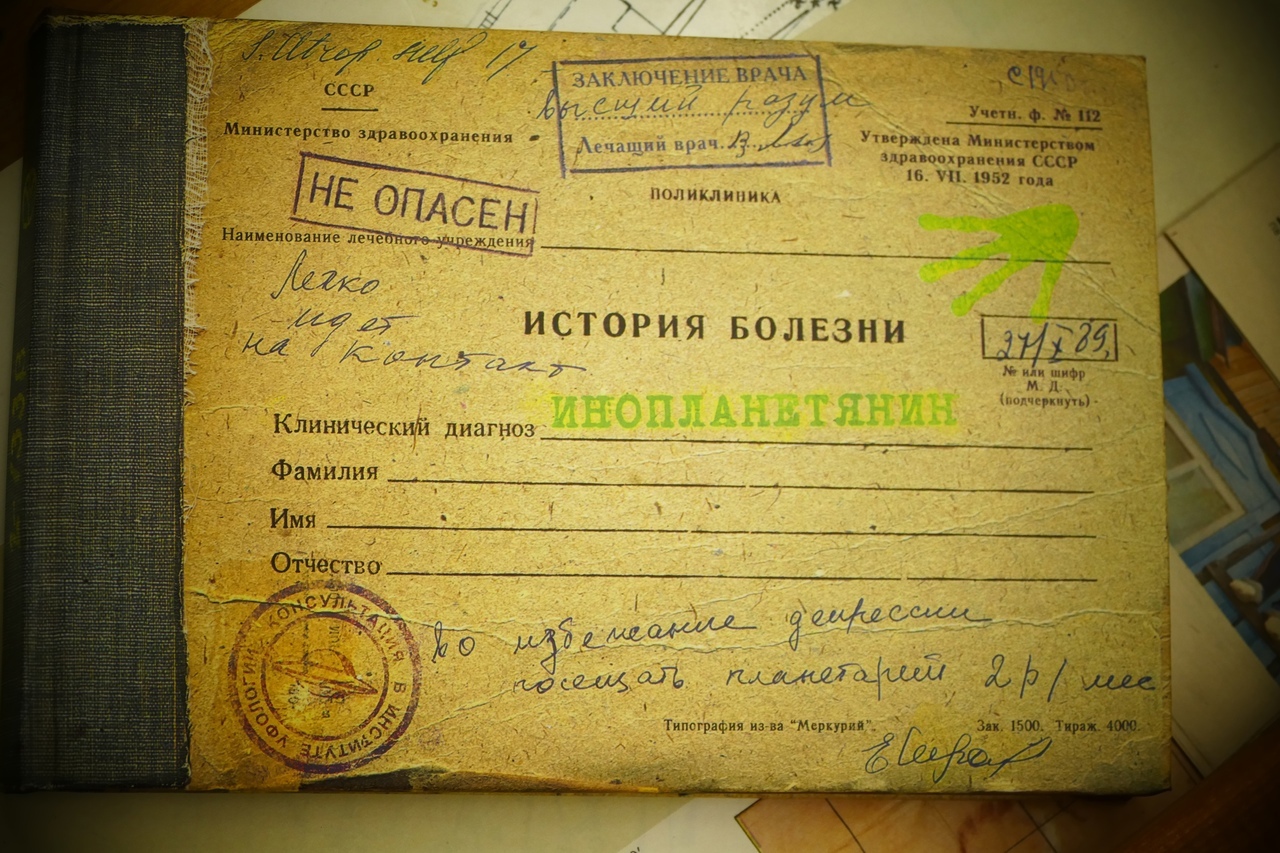 СССР
Министерство здравоохранения
ЗАКЛЮЧЕНИЕ ВРАЧА
Высший разум
Лечащий врач.
Учетн. ф. № 112
Утверждена Министерством
здравоохранения СССР
16. VII. 1952 года
ПОЛИКЛИНИКА
НЕ ОПАСЕН
Наименование лечебного учреждения
Легко
идет
на контакт
ИСТОРИЯ БОЛЕЗНИ
27/X 89,
№ или шифр
М. Д.
(подчеркнуть)
Клинический диагноз ИНОПЛАНЕТЯНИН
Фамилия
Имя
Отчество
КОНСУЛЬТАЦИЯ В ИНСТИТУТЕ УФОЛОГИИ
Во избежание депрессии
посещать планетарий 2 р/мес
Типография из-ва "Меркурий". Зак. 1500. Тираж. 4000.